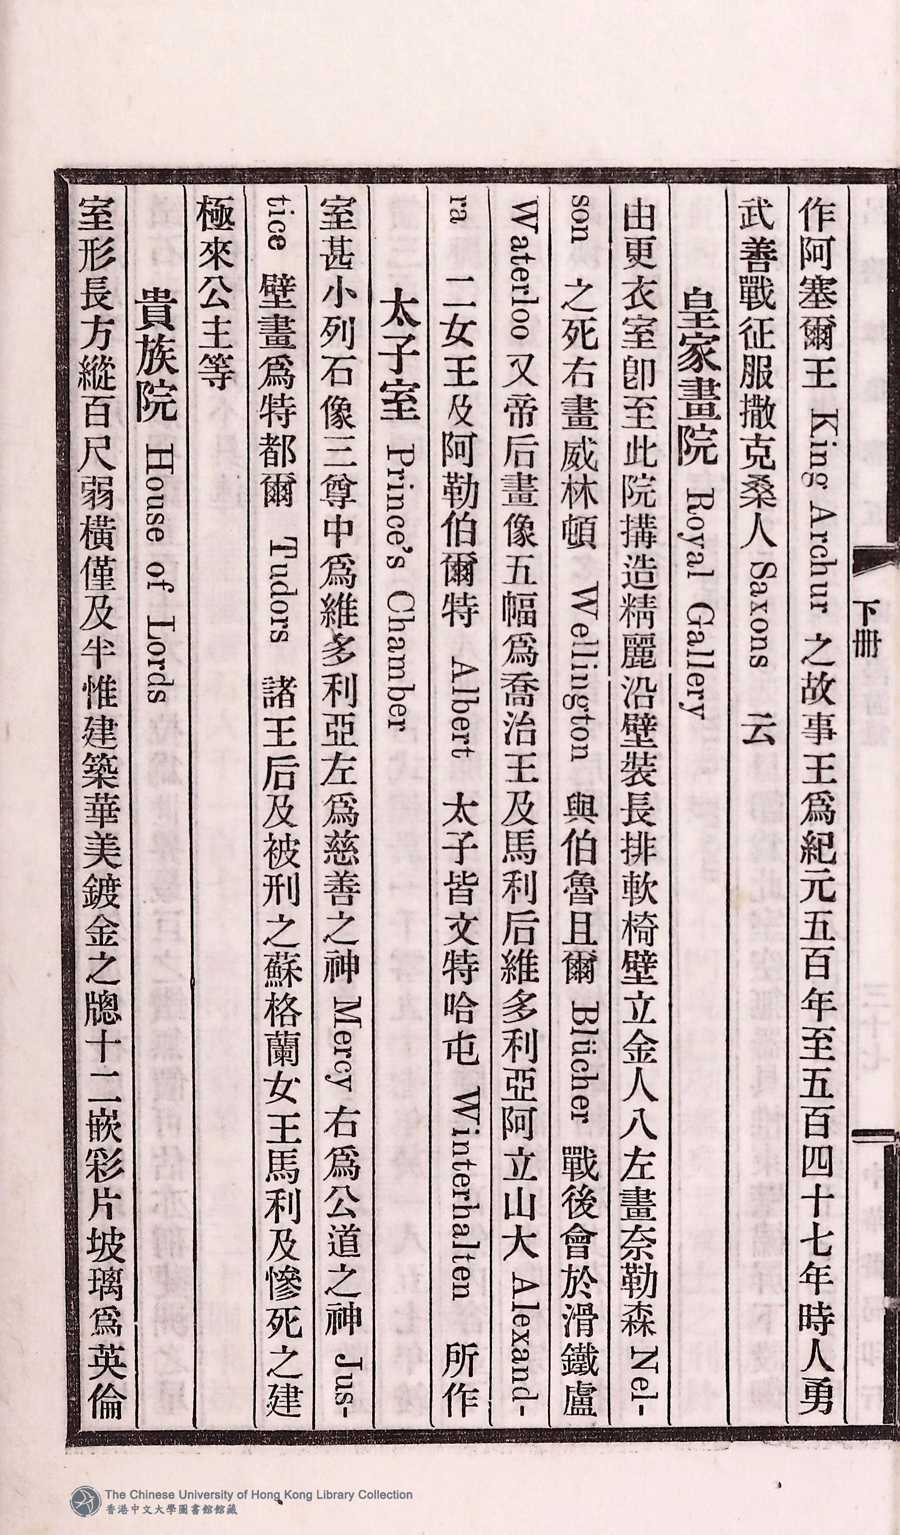 作阿塞爾王 King Archur 之故事王爲紀元五百年至五百四十七年時人勇
武善戰征服撒克桑人 Saxons 云
皇家畫院 Royal Gallery
由更衣室卽至此院搆造精麗沿壁裝長排軟椅壁立金人八左畫奈勒森 Nel-
son 之死右畫威林頓 Wellington 與伯魯且爾 Blücher 戰後會於滑鐵盧
Waterloo 又帝后畫像五幅爲喬治王及馬利后維多利亞阿立山大 Alexand-
ra 二女王及阿勒伯爾特 Albert 太子皆文特哈屯 Winterhalten 所作
太子室 Prince's Chamber
室甚小列石像三尊中爲維多利亞左爲慈善之神 Mercy 右爲公道之神 Jus-
tice 壁畫爲特都爾 Tudors 諸王后及被刑之蘇格蘭女王馬利及慘死之建
極來公主等
貴族院 House of Lords
室形長方縱百尺弱橫僅及半惟建築華美鍍金之牕十二嵌彩片坡璃爲英倫
下册
The Chinese University of Hong Kong Library Collection
香港中文大學圖書館館藏